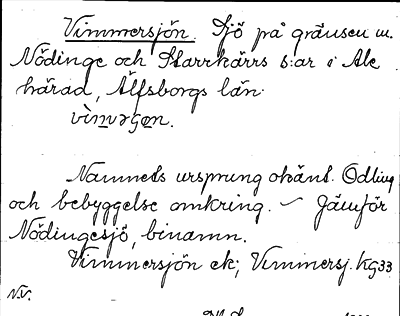 Vimmersjön. Sjö på gränsen m.
Nödinge och Starrkärrs s:ar i Ale
härad, Älfsborgs län.
Namnets ursprung okänt. Odling
och bebyggelse omkring. – Jämför
Nödingesjö, binamn.
Vimmersjön ek; Vimmersj. hg 33
N.V.